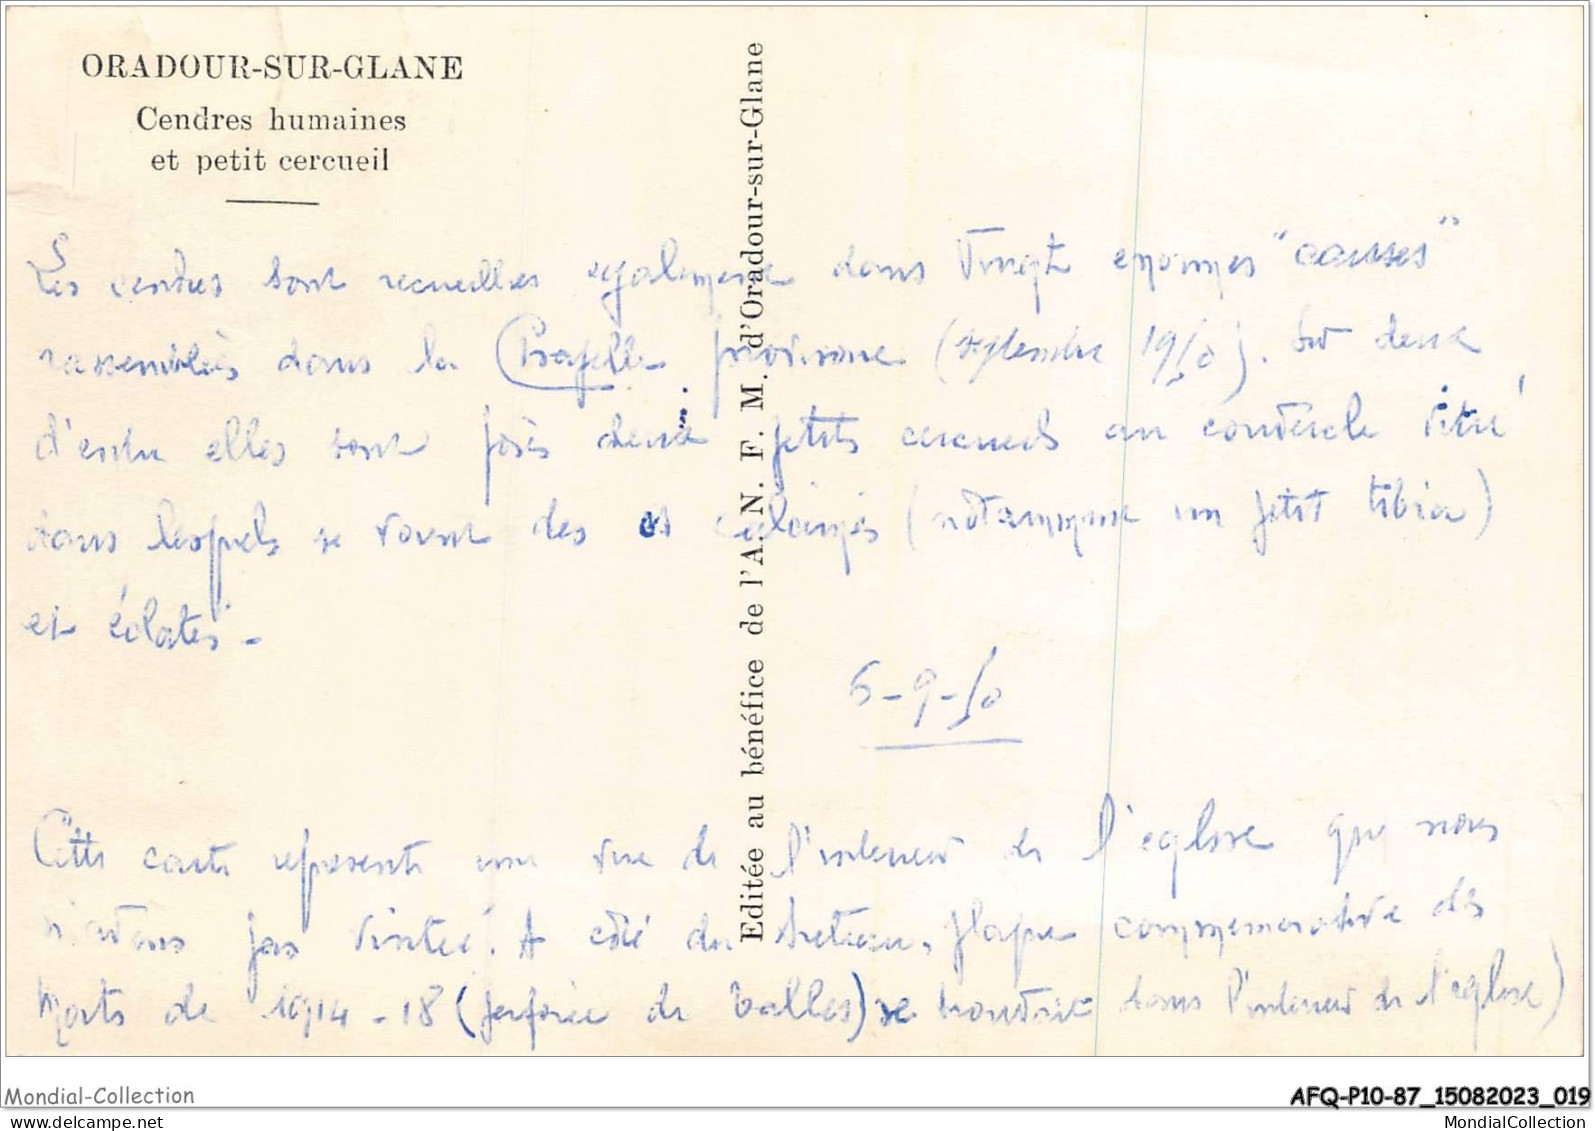 ORADOUR-SUR-GLANE
Cendres humaines
et petit cercueil
Editée au bénéfice de l'A. N. F. M. d'Oradour-sur-Glane
Les cendres sont recueillies egalement dans vingt enormes "causses"
rassemblés dans la Chapelle provisoire (septembre 1950). Sur deux
d'entre elles sont posés deux petits cercueils au couvercle vitré
dans lesquels se voient des os calcinés (notamment un petit tibia)
et éclatés -
6-9-50
Cette carte represente une vue de l'interieur de l'eglise que nous
n'avons pas visitée. A côté du, plaque commemorative des
Morts de 1914-18 (perforée de balles) se trouvait dans l'interieur de l'eglise)
Mondial-Collection
AFQ-P10-87_15082023_019
MondialCollection
MondialCollection